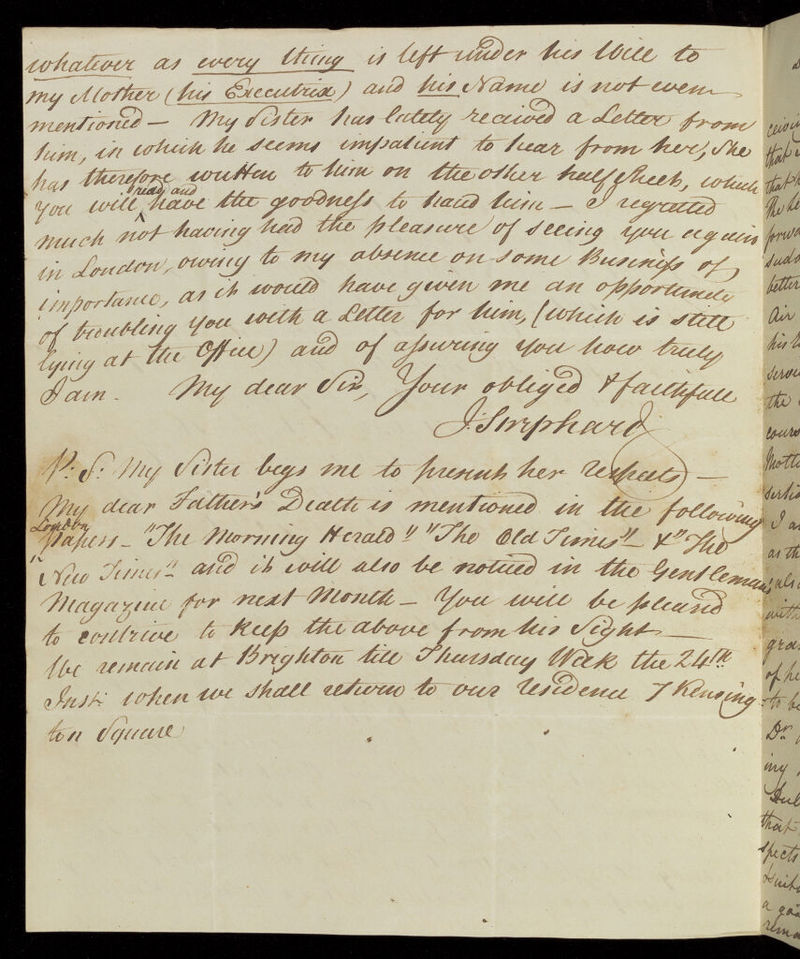 whatever as every thing is left under his Will to
my Mother (his Executrix) and his Name is not even
mentioned — My Sister has lately received a Letter from
him, in which he seems impatient to hear from her, She
has therefore written to him on the other half Sheet, which
read and
you will have the goodness to hand him — I regretted
much not having had the pleasure of seeing you again
in London, owing to my absence on some Business of
importance, as it would have given me an opportunity
of troubling you with a Letter for him, (which is still
lying at the Office) and of assuring you how truly
I am. My dear Sir, Your obliged & faithfull
J: Shephard
P: S: My Sister begs me to present her respects —
My dear Father's Death is mentioned in the following
London
Papers — "The Morning Herald" "The Old Times" — & "The
New Times" and it will also be noticed in the Gentlemans
Magazine for next Month — You will be pleased
to contrive to keep the above from his Sight —
We remain at Brighton till Thursday Week the 24th
Inst: when we shall return to our residence 7 Kensing-
ton Square
that
The
better
Air
the
I a
as th
with
of h
to b
Dr
that
spects